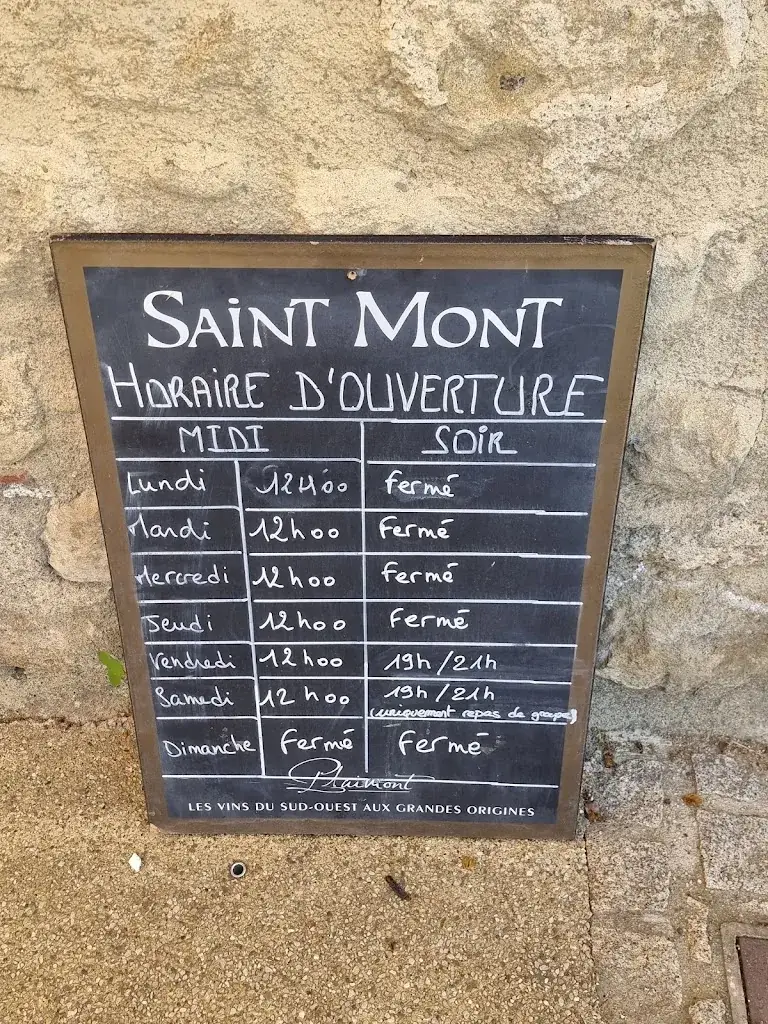 SAINT MONT
HORAIRE D'OUVERTURE
MIDI SOIR
Lundi 12h00 fermé
Mardi 12h00 Fermé
Mercredi 12h00 fermé
Jeudi 12h00 Fermé
Vendredi 12h00 19h/21h
Samedi 12h00 19h/21h
(uniquement repas de groupe)
Dimanche fermé fermé
Plaimont
LES VINS DU SUD-OUEST AUX GRANDES ORIGINES